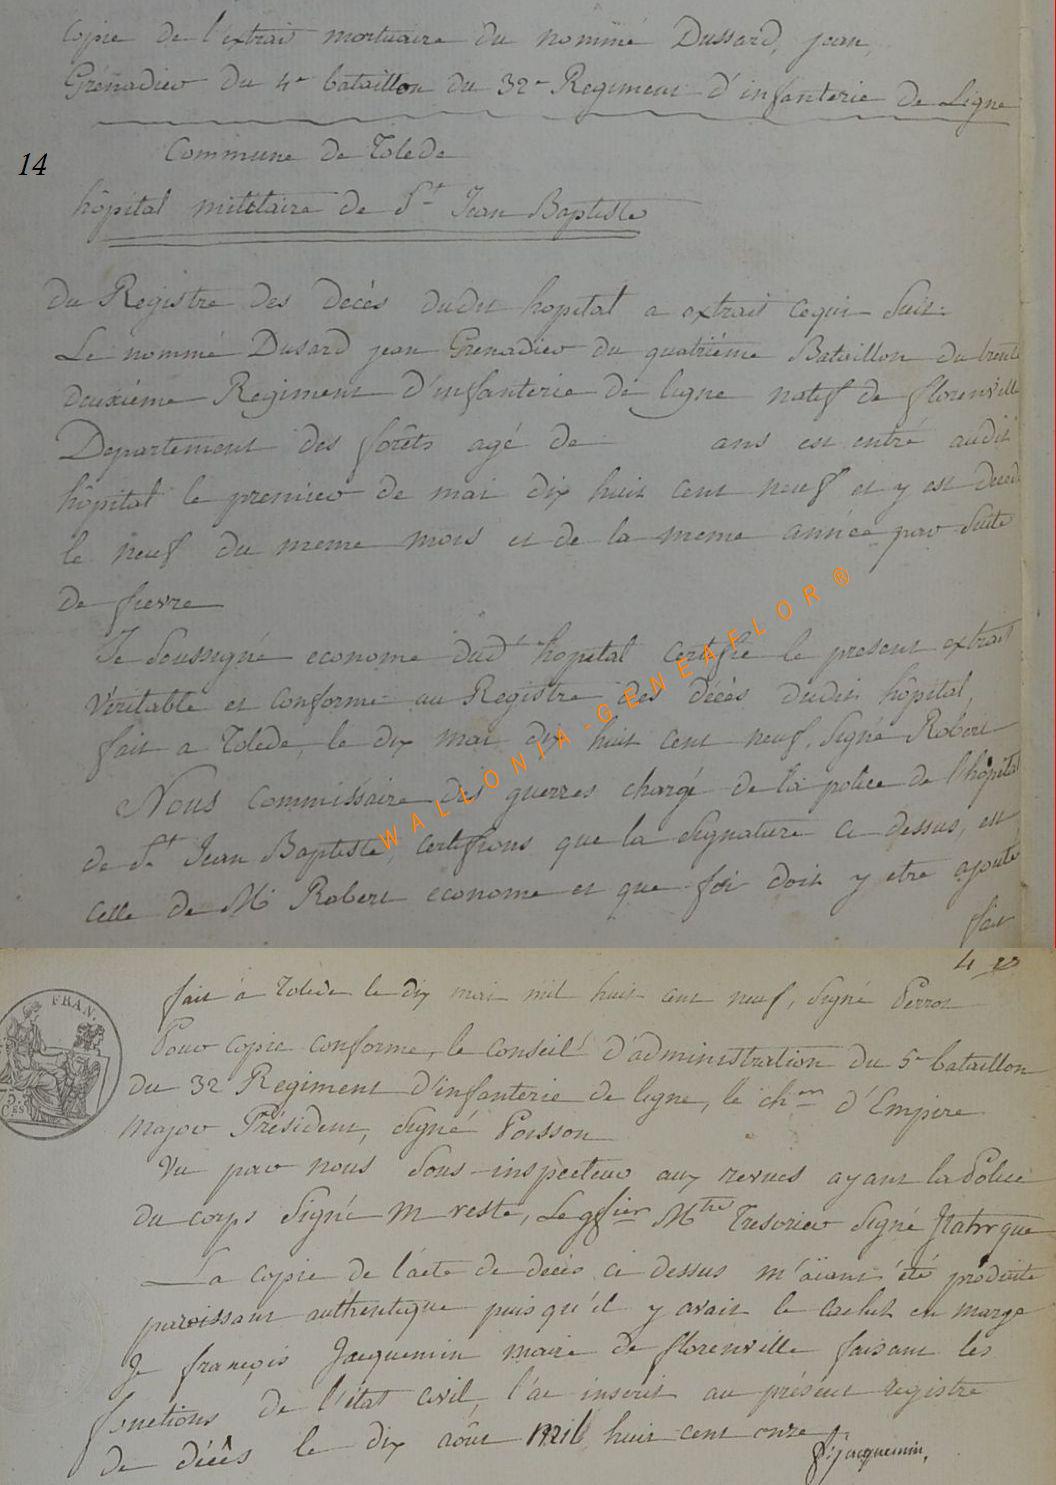 Copie de l'extrait mortuaire du nommé Dussard, jean,
Grénadier du 4e bataillon du 32e Regiment d'infanterie de Ligne
14
Commune de Tolede
hôpital militaire de St Jean Baptiste
du Registre des decès dudit hopital a extrait cequi Suit:
Le nommé Dusard jean Grenadier du quatriéme Bataillon du trente
deuxiéme Regiment d'infanterie de ligne natif de florenville
Departement des forêts agé de ans est entré audit
hôpital le premier de mai dix huit cent neuf et y est decedé
le neuf du meme mois et de la meme année par Suite
de fievre
Je Soussigné econome dudt hopital certifie le present extrait
Véritable et conforme au Registre des décès dudit hôpital,
fait a Tolede, le dix mai dix huit cent neuf. Signé Robert
Nous Commissaire des guerres chargé de la police de l'hôpital
de St Jean Baptiste, certifions que la Signature ci dessus, est
celle de Mr Robert econome et que foi doit y etre ajouté
fait
WALLONIA-GENEAFLOR®
FRAN.
fait à Tolède le dix mai mil huit cent neuf, Signé Perrot
Pour copie conforme, le Conseil d'administration du 5e bataillon
du 32 Regiment d'infanterie de ligne, le ch.on d'Empire
Major Président, Signé Poisson
Vu par nous Sous-inspecteur aux revues ayant la Police
du corps Signé Le Mtre Tresorier Signé
La copie de l'acte de decès ci dessus m'aïant été produite
paroissant authentique puisqu'il y avait le cachet en marge
Je françois Jacquemin maire de florenville faisant les
fonctions de l'état civil, l'ai inscrit au présent registre
de décès le dix août mil huit cent onze
f: jacquemin,